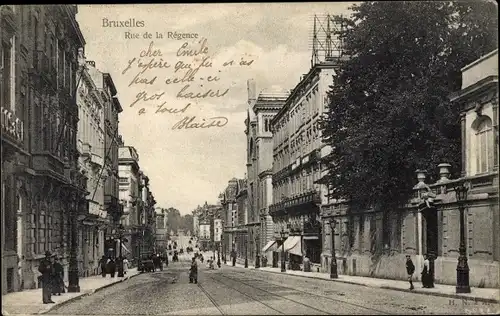 Bruxelles
Rue de la Régence
cher Emile
J'espère que tu n'as
pas celle-ci
gros baisers
à tous
Blaise
H. N.